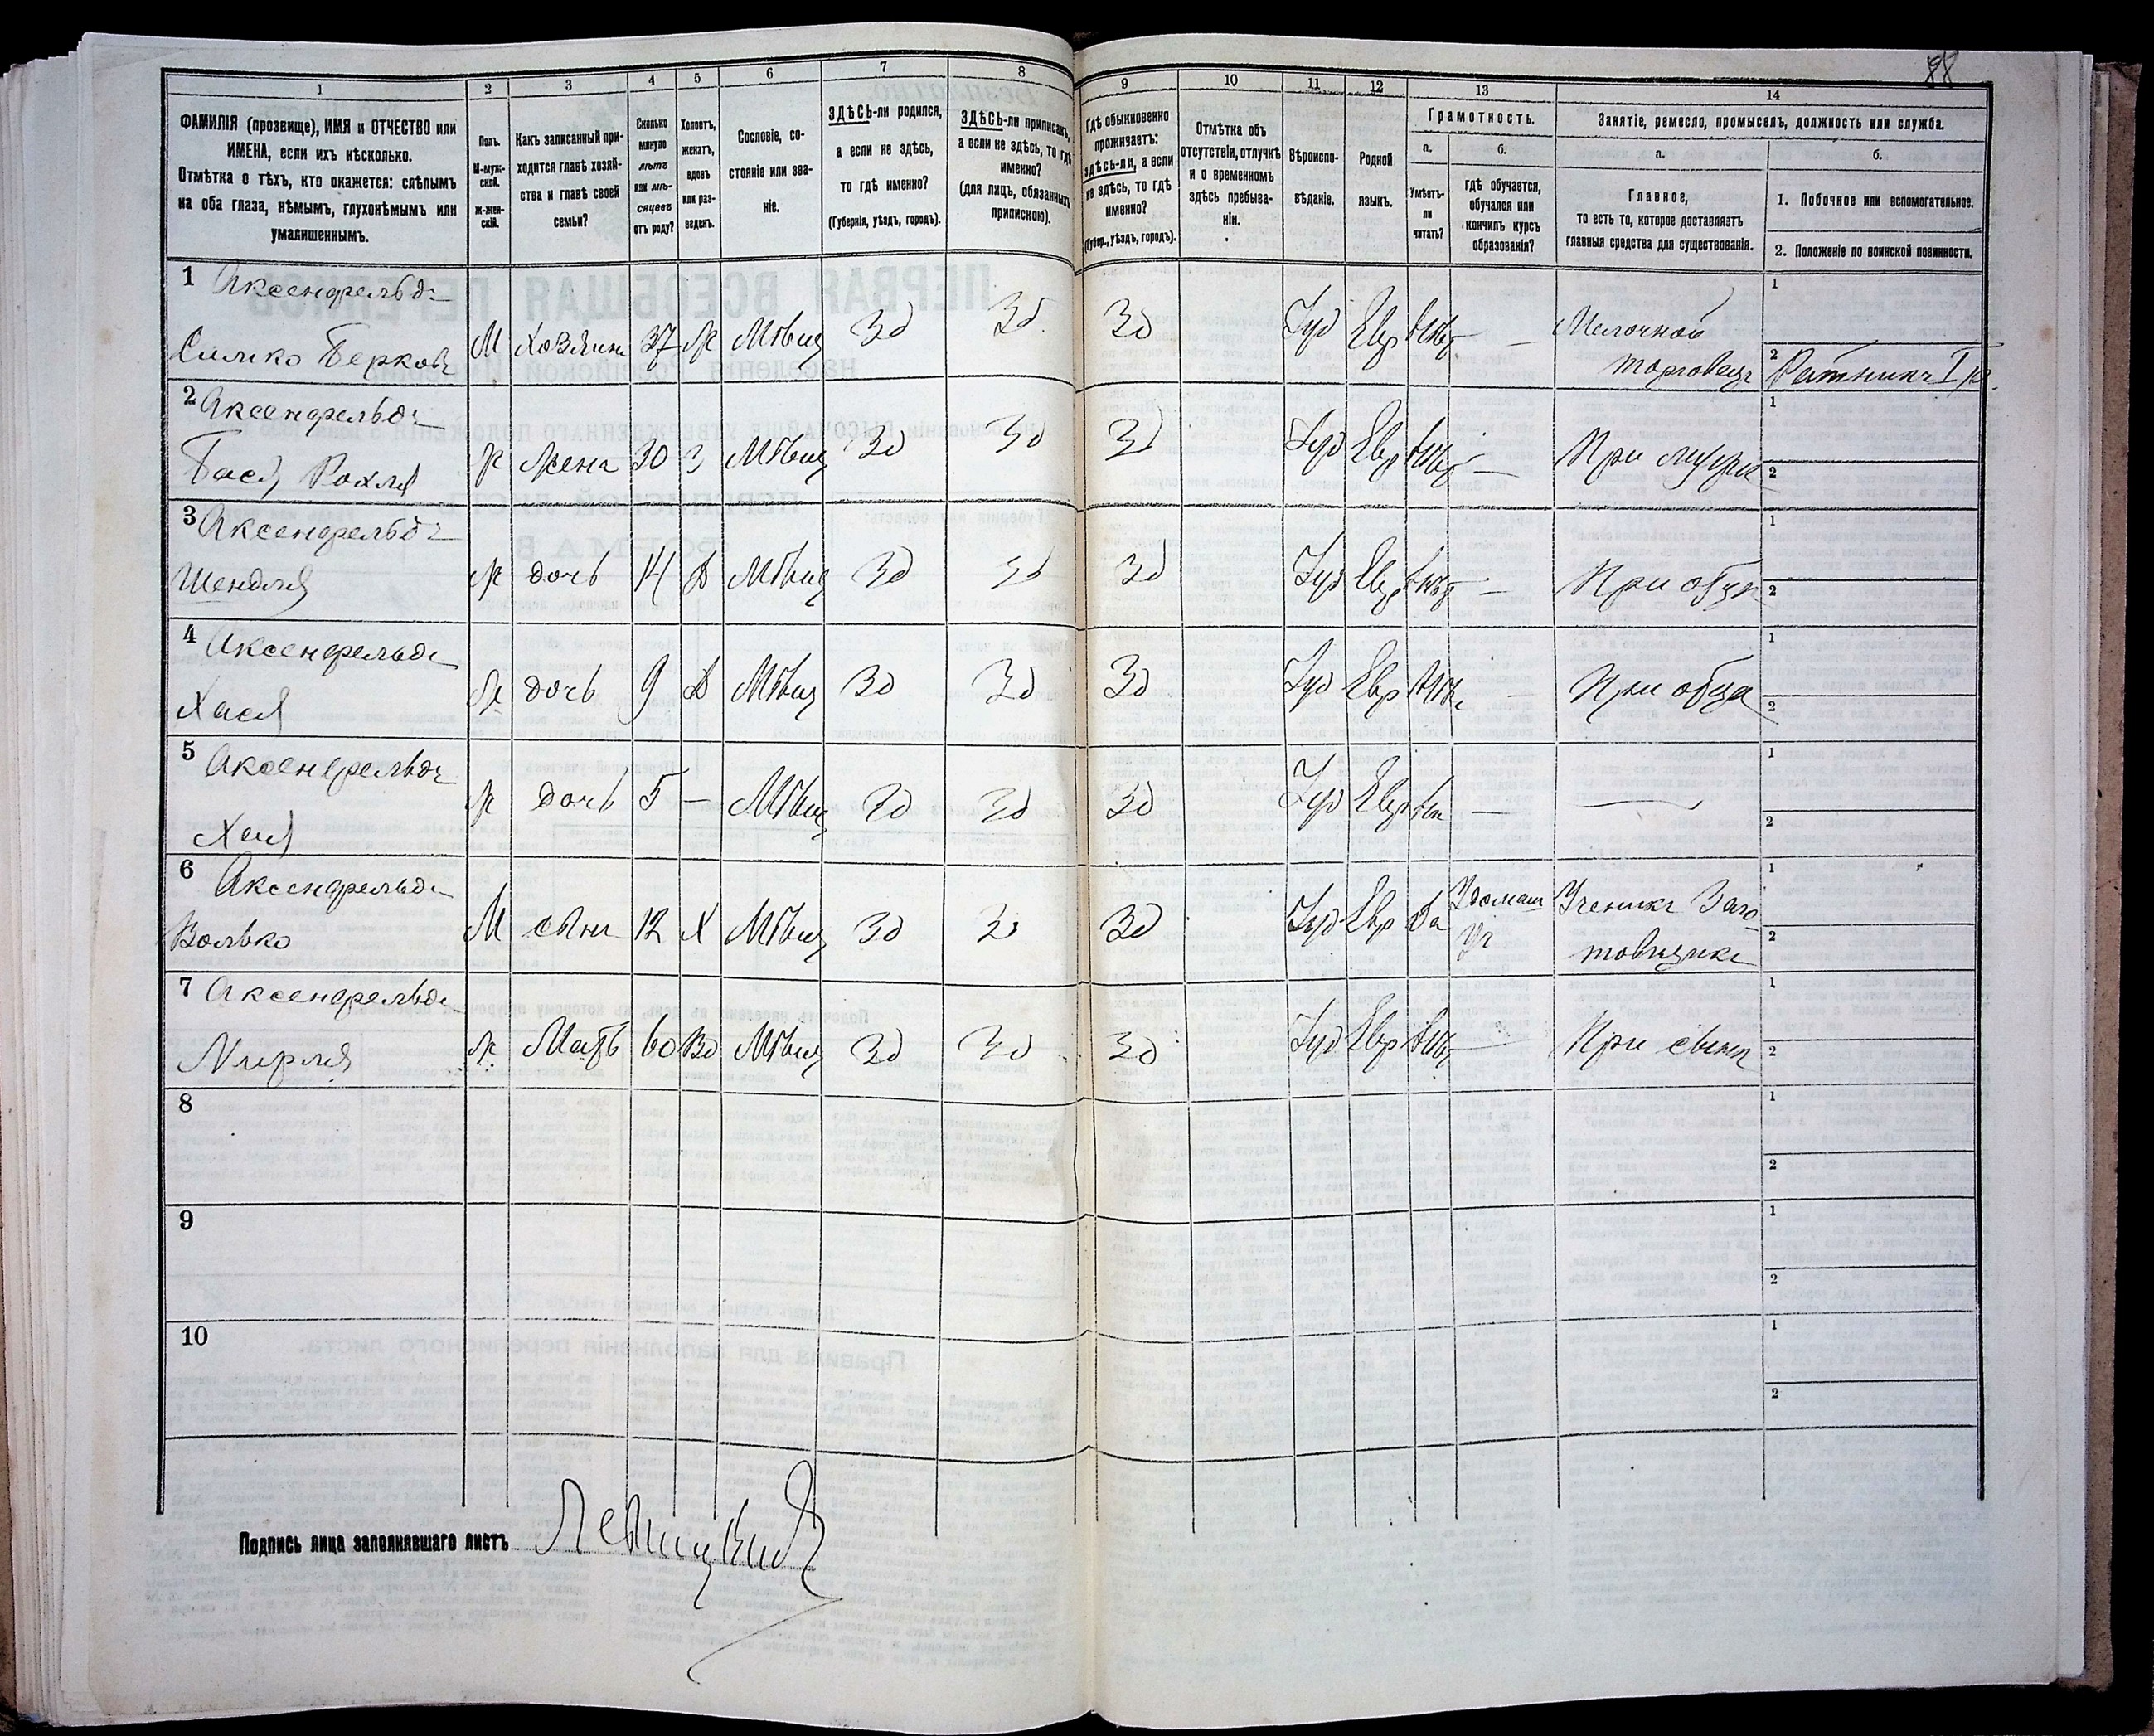 88
1 2 3 4 5 6 7 8 9 10 11 12 13 14
ФАМИЛІЯ (прозвище), ИМЯ и ОТЧЕСТВО или
ИМЕНА, если ихъ нѣсколько.
Отмѣтка о тѣхъ, кто окажется: слѣпымъ
на оба глаза, нѣмымъ, глухонѣмымъ или
умалишеннымъ.
Полъ.
М-муж-
ской.
Ж-жен-
скій.
Какъ записанный при-
ходится главѣ хозяй-
ства и главѣ своей
семьи?
Сколько
минуло
лѣтъ
или мѣ-
сяцевъ
отъ роду?
Холостъ,
женатъ,
вдовъ
или раз-
веденъ.
Сословіе, со-
стояніе или зва-
ніе.
ЗДѢСЬ-ли родился,
а если не здѣсь,
то гдѣ именно?
(Губернія, уѣздъ, городъ).
ЗДѢСЬ-ли приписанъ,
а если не здѣсь, то гдѣ
именно?
(для лицъ, обязанныхъ
припискою).
Гдѣ обыкновенно
проживаетъ:
здѣсь-ли, а если
не здѣсь, то гдѣ
именно?
(Губер., уѣздъ, городъ).
Отмѣтка объ
отсутствіи, отлучкѣ
и о временномъ
здѣсь пребыва-
ніи.
Вѣроиспо-
вѣданіе.
Родной
языкъ.
Грамотность.
а.
Умѣетъ-
ли
читать?
б.
Гдѣ обучается,
обучался или
кончилъ курсъ
образованія?
Занятіе, ремесло, промыселъ, должность или служба.
а.
Главное,
то есть то, которое доставляетъ
главныя средства для существованія.
б.
1. Побочное или вспомогательное.
2. Положеніе по воинской повинности.
1 Аксенфельдъ
Симко Берковъ М Хозяинъ 37 Ж Мѣщ Зд Зд Зд Іуд Евр Нѣт — Мелочной
торговецъ
1
2 Ратникъ I р.
2 Аксенфельдъ
Бася Рохля Ж Жена 30 З Мѣщ Зд Зд Зд Іуд Евр Нѣт — При мужѣ
1
2
3 Аксенфельдъ
Шендля Ж дочь 14 Д Мѣщ Зд Зд Зд Іуд Евр Нѣт — При отцѣ
1
2
4 Аксенфельдъ
Хася Ж дочь 9 Д Мѣщ Зд Зд Зд Іуд Евр — При отцѣ
1
2
5 Аксенфельдъ
Хая Ж дочь 5 — Мѣщ Зд Зд Зд Іуд Евр — —
1
2
6 Аксенфельдъ
Волько М сынъ 12 Х Мѣщ Зд Зд Зд Іуд Евр Да Ученикъ Заго
товщика
1
2
7 Аксенфельдъ
Мирля Ж Мать 60 Вд Мѣщ Зд Зд Зд Іуд Евр Нѣт — При сынѣ
1
2
8
1
2
9
1
2
10
1
2
Подпись лица заполнявшаго листъ